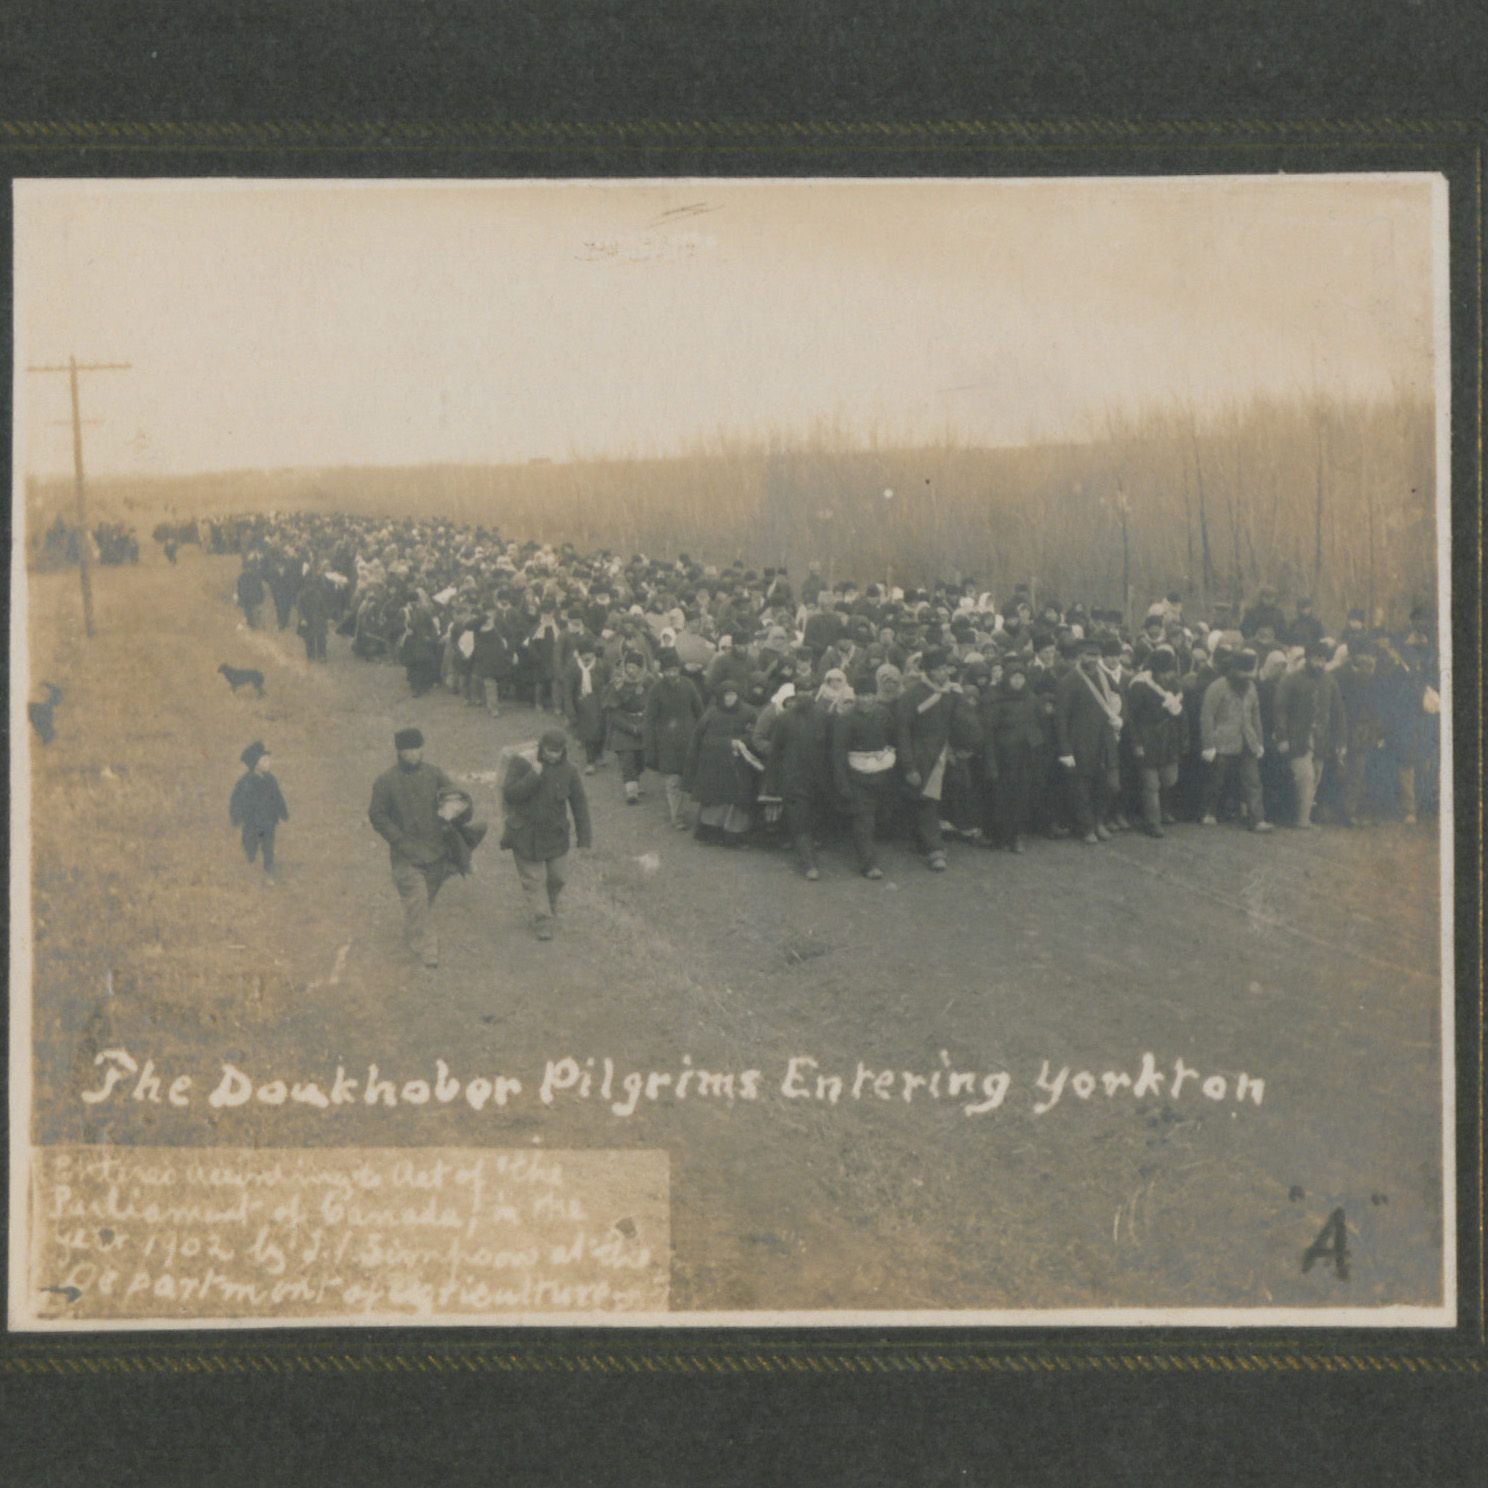 The Doukhobor Pilgrims Entering Yorkton
Entered according to Act of the
Parliament of Canada, in the
year 1902 by T. V. Simpson at the
Department of Agriculture
"A"